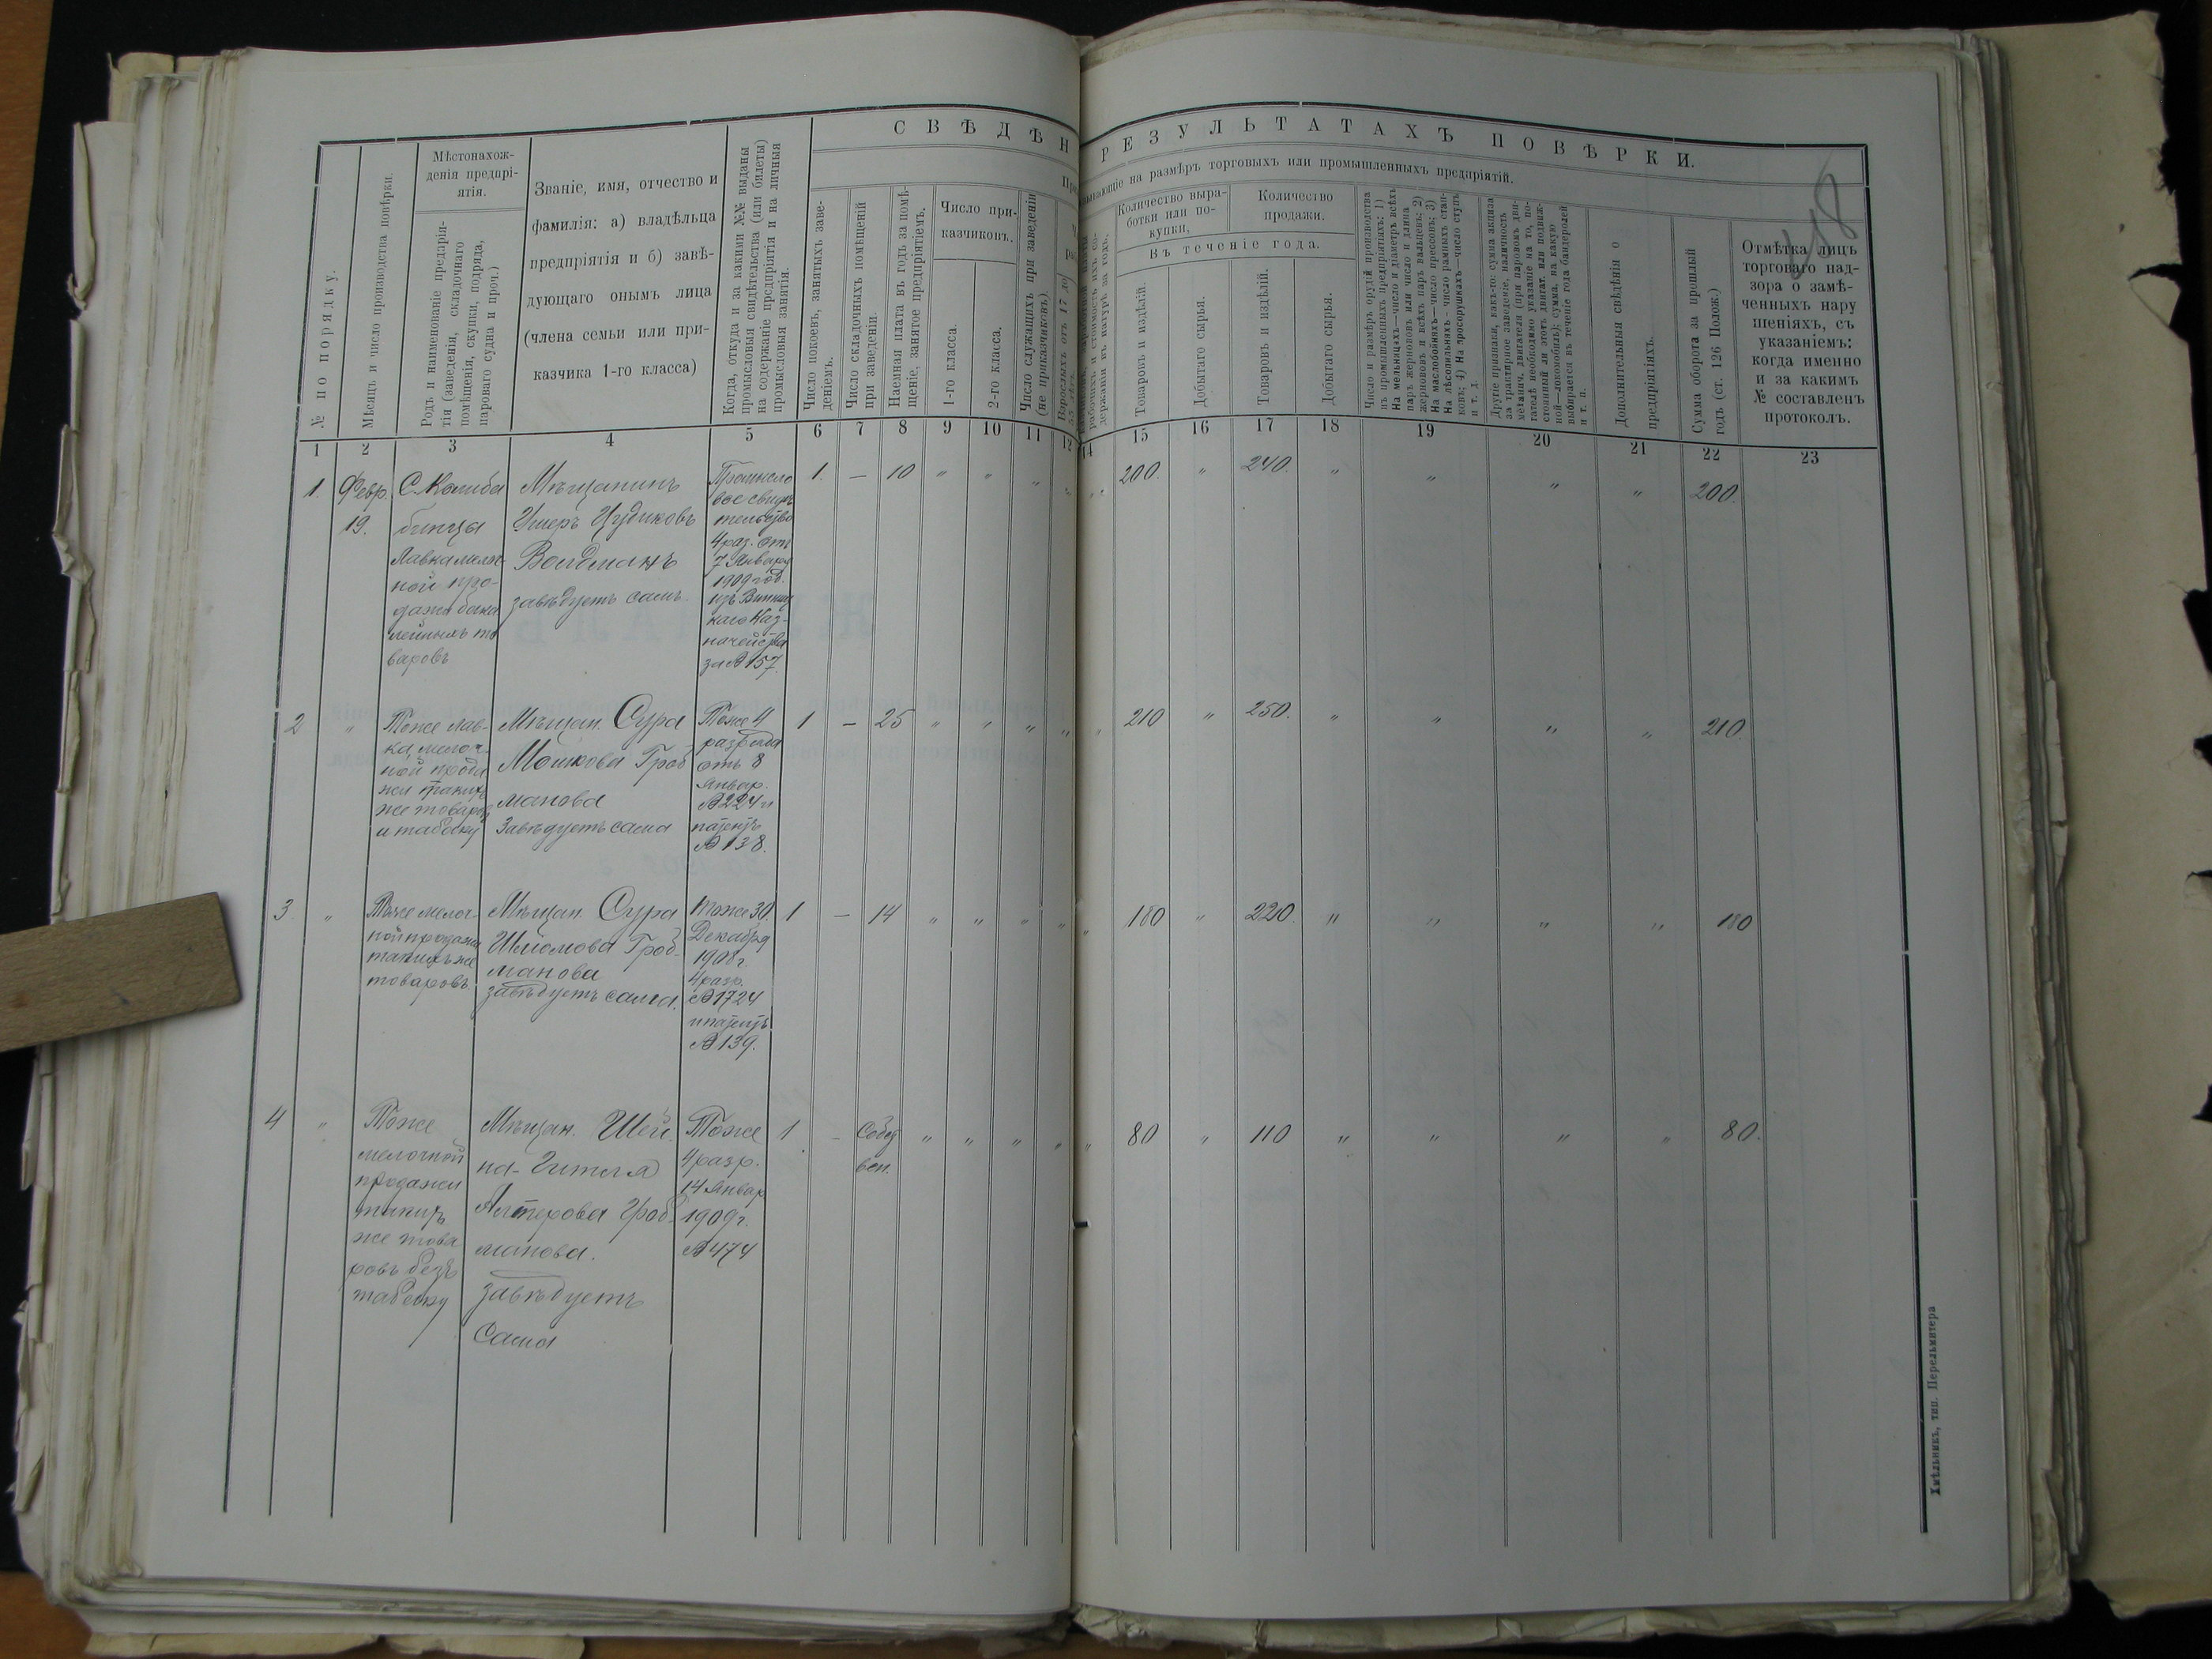 СВѢДѢН
РЕЗУЛЬТАТАХЪ ПОВѢРКИ.
на размѣръ торговыхъ или промышленныхъ предпріятій.
№ по порядку.
Мѣсяцъ и число производства повѣрки.
Мѣстонахож-
денія предпрі-
ятія.
Родъ и наименованіе предпрія-
тія (заведенія, складочнаго
помѣщенія, скупки, подряда,
пароваго судна и проч.)
Званіе, имя, отчество и
фамилія: а) владѣльца
предпріятія и б) завѣ-
дующаго онымъ лица
(члена семьи или при-
казчика 1-го класса)
Когда, откуда и за какими №№ выданы
промысловыя свидѣтельства (или билеты)
на содержаніе предпріятія и на личныя
промысловыя занятія.
Число покоевъ, занятыхъ заве-
деніемъ.
Число складочныхъ помѣщеній
при заведеніи.
Наемная плата въ годъ за помѣ-
щеніе, занятое предпріятіемъ.
Число при-
казчиковъ.
1-го класса.
2-го класса.
Число служащихъ при заведеніи
(не приказчиковъ).
Взрослыхъ отъ 17 до
55 лѣтъ.
Количество выра-
ботки или по-
купки.
Количество
продажи.
Въ теченіе года.
Товаровъ и издѣлій.
Добытаго сырья.
Товаровъ и издѣлій.
Добытаго сырья.
Число и размѣръ орудій производства
въ промышленныхъ предпріятіяхъ: 1)
На мельницахъ—число и діаметръ всѣхъ
паръ жернововъ или число и длина
жернововъ и всѣхъ паръ вальцевъ; 2)
На маслобойняхъ—число прессовъ; 3)
На лѣсопильняхъ—число рамныхъ стан-
ковъ; 4) На просорушкахъ—число ступъ
и т. д.
Другіе признаки, какъ-то: сумма акциза
за трактирное заведеніе, наличность
механич. двигателя (при паровомъ дви-
гателѣ необходимо указаніе на то, по-
стоянный ли этотъ двигат. или подвиж-
ной—локомобиль); сумма, на какую
выбирается въ теченіе года бандеролей
и т. п.
Дополнительныя свѣдѣнія о
предпріятіяхъ.
Сумма оборота за прошлый
годъ (ст. 126 Полож.)
Отмѣтка лицъ
торговаго над-
зора о замѣ-
ченныхъ нару
шеніяхъ, съ
указаніемъ:
когда именно
и за какимъ
№ составленъ
протоколъ.
1 2 3 4 5 6 7 8 9 10 11 12 14 15 16 17 18 19 20 21 22 23
1. Февр. 1. — 10 " " " " " 200. " 240. " " " " 200.
19.
бинцы
Лавка мелоч-
ной про-
дажи бака
лейныхъ то
варовъ
Мѣщанинъ
Ушеръ Цудиковъ
Волдманъ
завѣдуетъ самъ.
Промысло
вое свидѣ
тельство
4 раз. отъ
7 Января
1909 год.
изъ Винниц
каго Каз-
начейства
за № 157.
2 " 1 — 25 " " " " " 210 " 250. " " " " 210.
Тоже лав-
ка мелоч-
ной прода
жи такихъ
же товаровъ
и табаку
Мѣщан. Сура
Мошкова Гроб
манова
Завѣдуетъ сама
Тоже 4
разряда
отъ 8
Январ.
№ 224 и
патентъ
№ 138.
3. " 1 — 14 " " " " " 180 " 220. " " " " 180
Тоже мелоч-
ной продажи
такихъ же
товаровъ
Мѣщан. Сура
Шлiомова Гроб-
манова
завѣдуетъ сама.
Тоже 30.
Декабря
1908 г.
4 разр.
№ 1724
и патентъ
№ 139.
4 " 1 — Собст
вен. " " " " " 80 " 110 " " " " 80.
Тоже
мелочной
продажи
такихъ
же това
ровъ безъ
табаку
Мѣщан. Шей-
на-Гитля
Алтерова Гроб-
манова.
завѣдуетъ
Сама
Тоже
4 разр.
14 Январ
1909 г.
№ 474
Хмѣльникъ, тип. Перельмитера